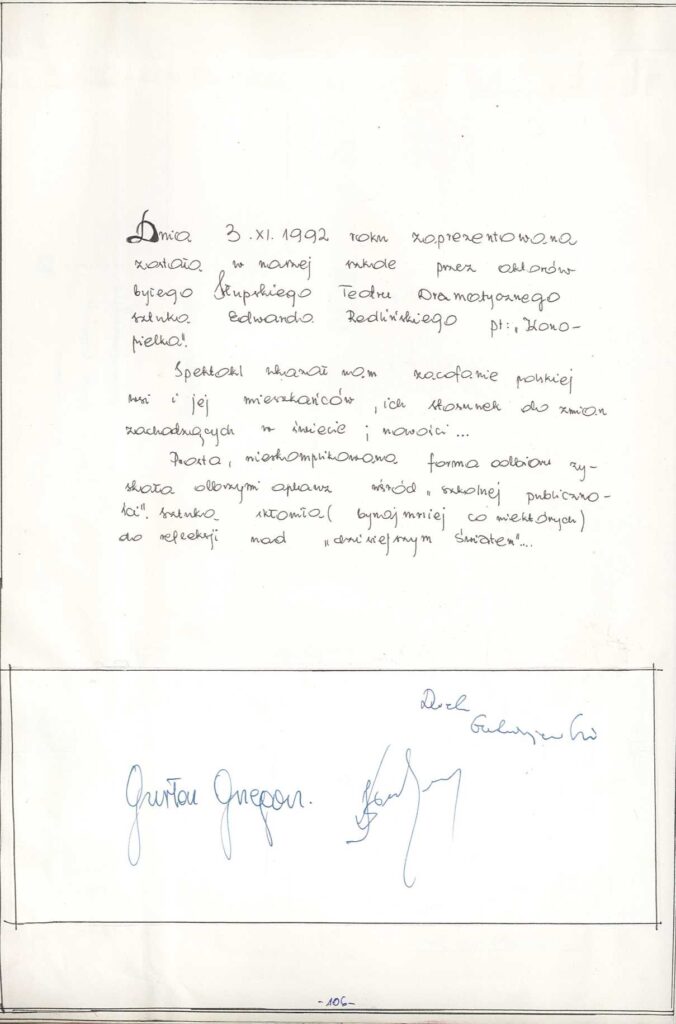 Dnia 3.XI.1992 roku zaprezentowana
została w naszej szkole przez aktorów
byłego Słupskiego Teatru Dramatycznego
sztuka Edwarda Redlińskiego pt: „Kono-
pielka".
Spektakl ukazał nam zacofanie polskiej
wsi i jej mieszkańców, ich stosunek do zmian
zachodzących w świecie i nowości ...
Prosta, nieskomplikowana forma odbioru zy-
skała olbrzymi aplauz wśród „szkolnej publiczno-
ści". Sztuka skłoniła (bynajmniej co niektórych)
do refleksji nad „dzisiejszym światem"...
Gustaw
-106-